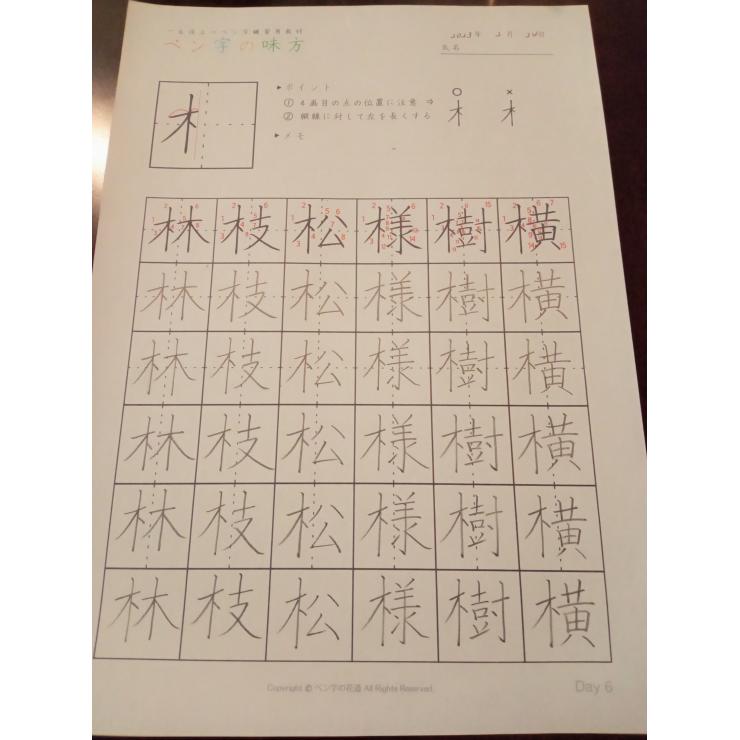 ペン字の味方
2023年 2月 24日
氏名
木
▶ポイント
① 4画目の点の位置に注意 ⇒
② 縦線に対して左を長くする
▶メモ
○ ×
木 木
林 枝 松 様 樹 横
林 枝 松 様 樹 横
林 枝 松 様 樹 横
林 枝 松 様 樹 横
林 枝 松 様 樹 横
林 枝 松 様 樹 横
Copyright © ペン字の花道 All Rights Reserved.
Day 6